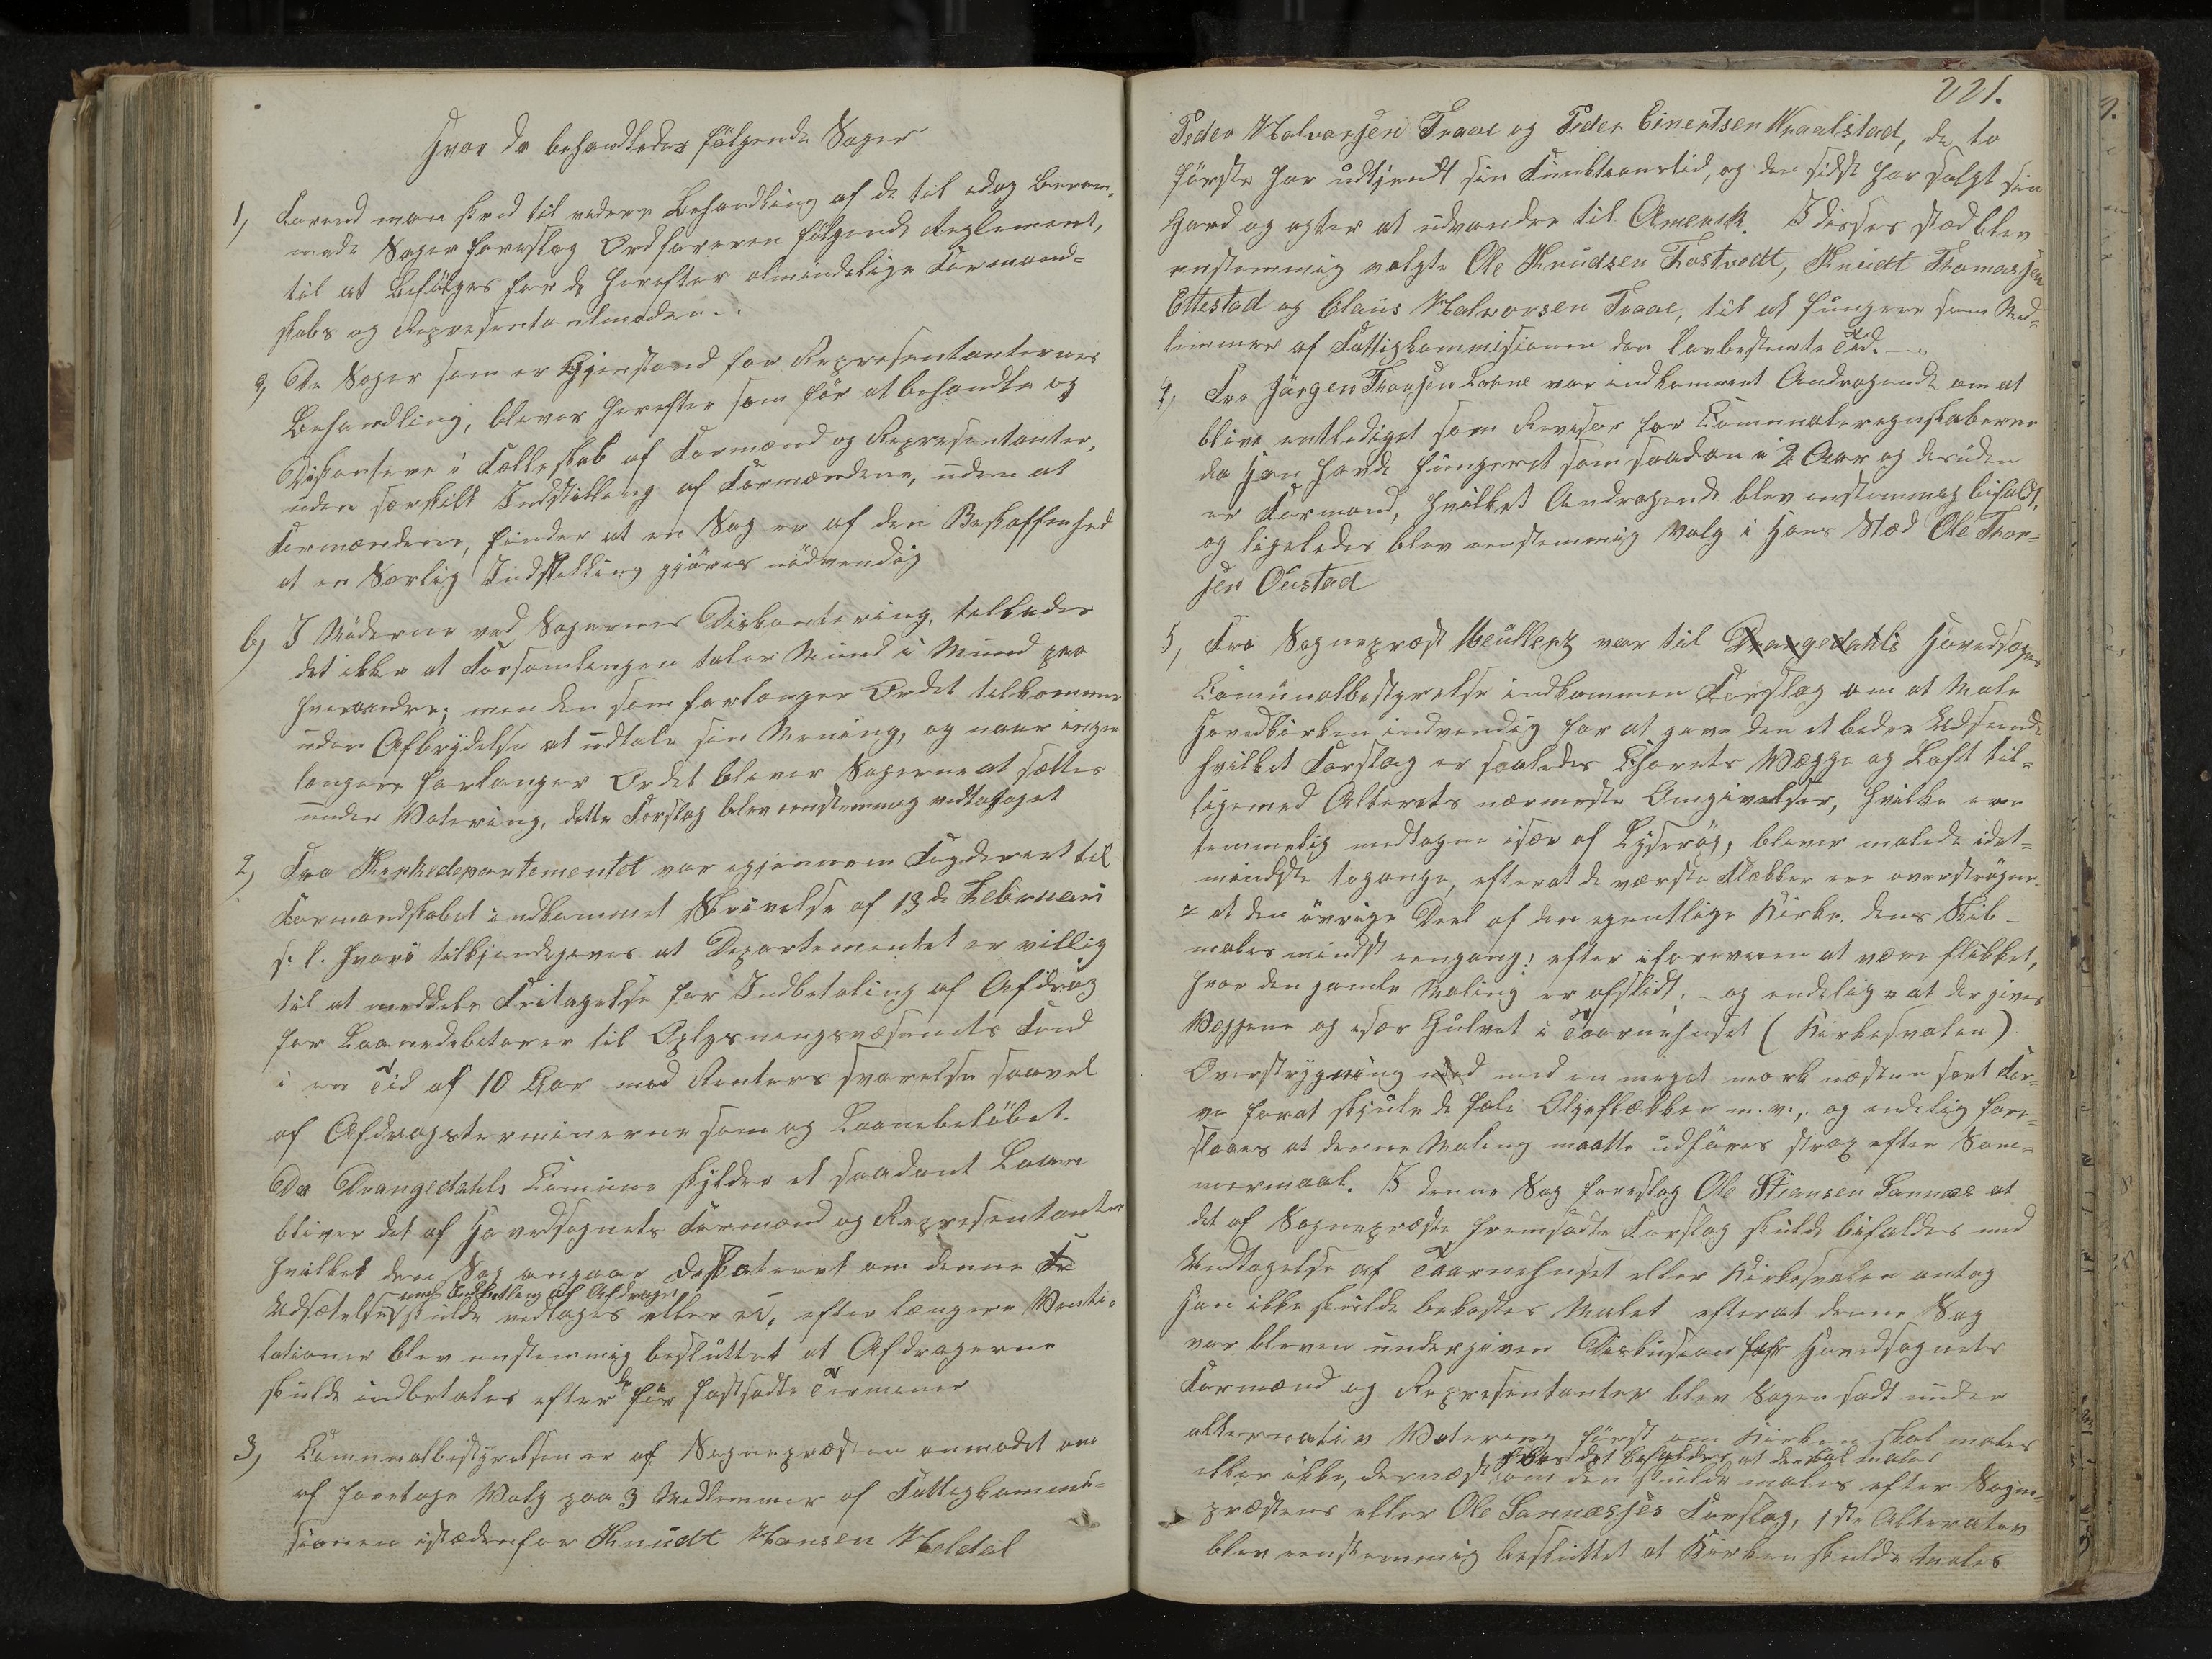 Hvor da behandledes følgende Sager
1, Forend man skred til videre Behandling af de til idag beram-
mede Sager foreslog Ordføreren følgende Reglement,
til at befølges for de herefter almindelige Formand-
skabs og Representantmøder.
a, De Sager som er Gjenstand for Representanternes
Behandling, bliver herefter som før at behandle og
Diskutere i Fælleskab af Formænd og Representanter,
uden særskilt Indstilling af Formændene, uden at
Formændene, finder at en Sag er af den Beskaffenhed
at en Særlig Indstilling gjøres nødvendig
b, I Møderne ved Sagernes Diskutering, tillades
det ikke at Forsamlingen taler Mund i Mund paa
hverandre; men den som forlanger Ordet tilkommer
uden Afbrydelse at udtale sin Mening, og naar ingen
længere forlanger Ordet bliver Sagerne at sættes
under Votering, dette Forslag blev eenstemmig vedtaget
2, Fra Kirkedepartementet var igjennem Fogderiet til
Formandskabet indkommet Skrivelse af 13de Februari
s. l. hvori tilkjendegives at Departementet er villig
til at meddele Fritagelse for Indbetaling af Afdrag
for Laanedebitorer til Oplysningsvæsenets Fond
i en Tid af 10 Aar mod Renters svarelse saavel
af Afdragsterminerne som og Laanebeløbet.
Da Drangedahls Comune skylder et saadant Laan
bliver det af Hovedsognets Formænd og Representanter
hvilket denne Sag angaar Diskuteret om denne
Udsættelse med Indbetaling af Afdraget skulde vedtages eller ei, efter længere Venti-
lationer blev enstemmig besluttet at Afdragerne
skulde indbetales efter de før fastsadte Terminer
3, Communalbestyrelsen er af Sognepræsten anmodet om
at foretage Valg paa 3 Medlemmer af Fattigkommi-
sionen istædenfor Knudt Hansen Heldal
221.
Peder Halvorsen Traae og Peder Einertsen Kraalstad, de to
første har udtjendt sin Funktionstid, og den sidste har solgt sin
Gaard og agter at udvandre til Amerik. I disses sted blev
enstemmig valgte Ole Knudsen Tostvedt, Knudt Thomassen
Ettestad og Claus Halvorsen Traae, til at fungere som Med-
lemmer af Fattigkommisionen den lovbestemte Tid.
4, Fra Jörgen Thorsen Lohne var indkommet Andragende om at
blive entlediget som Revisor for Communeregnskaberne
da Han havde fungeret som saadan i 2 Aar og desuden
er Formand, hvilket Andragende blev enstemmig bifaldt,
og ligeledes blev eenstemmig Valg i Hans Sted Ole Thor-
sen Oustad
5, Fra Sognepræst Meüllertz var til Drangedahls Hovedsogns
Comunalbestyrelse indkommen Forslag om at Male
Hovedkirken indvendig for at gave den et bedre Udseende
hvilket Forslag er saaledes Chorets Vægge og Loft til-
ligemed Alterets nærmeste Omgivelser, hvilke ere
temmelig medtagne især af Lyserøg, bliver malede idet-
mindste togange, efterat de værste Flækker ere overstrøgne
at den øvrige Deel af den egentlige Kirke. dens Skib -
males mindst eengang! efter iforveien at være flikket,
hvor den gamle Maling er afslidt. - og endelig at der gives
Væggene og især Gulvet i Taarnehuset (Kirkesvalen)
Overstrygning med med en meget mørk næsten sort Far-
ve forat skjule de fæle Oljeflækker m. v., og endelig fore-
slaaes at denne Maling maatte udføres strax efter Som-
mermaal. I denne Sag foreslog Ole Stiansen Sannæs at
det af Sognepræsten fremsadte Forslag skulde bifaldes med
Undtagelse af Taarnehuset eller Kirkesvalen antog
Han ikke skulde bekostes Malet efterat denne Sag
var bleven undergiven Diskusion for Hovedsognets
Formænd og Representanter blev Sagen sadt under
alternativ Votering først om Kirken skal males
eller ikke, dernæst hvis det befaldes at den bal males om den skulde males efter Sogne-
præstens eller Ole Sannæsses Forslag, 1ste Alterativ
blev eenstemmig besluttet at Kirken skulde Males